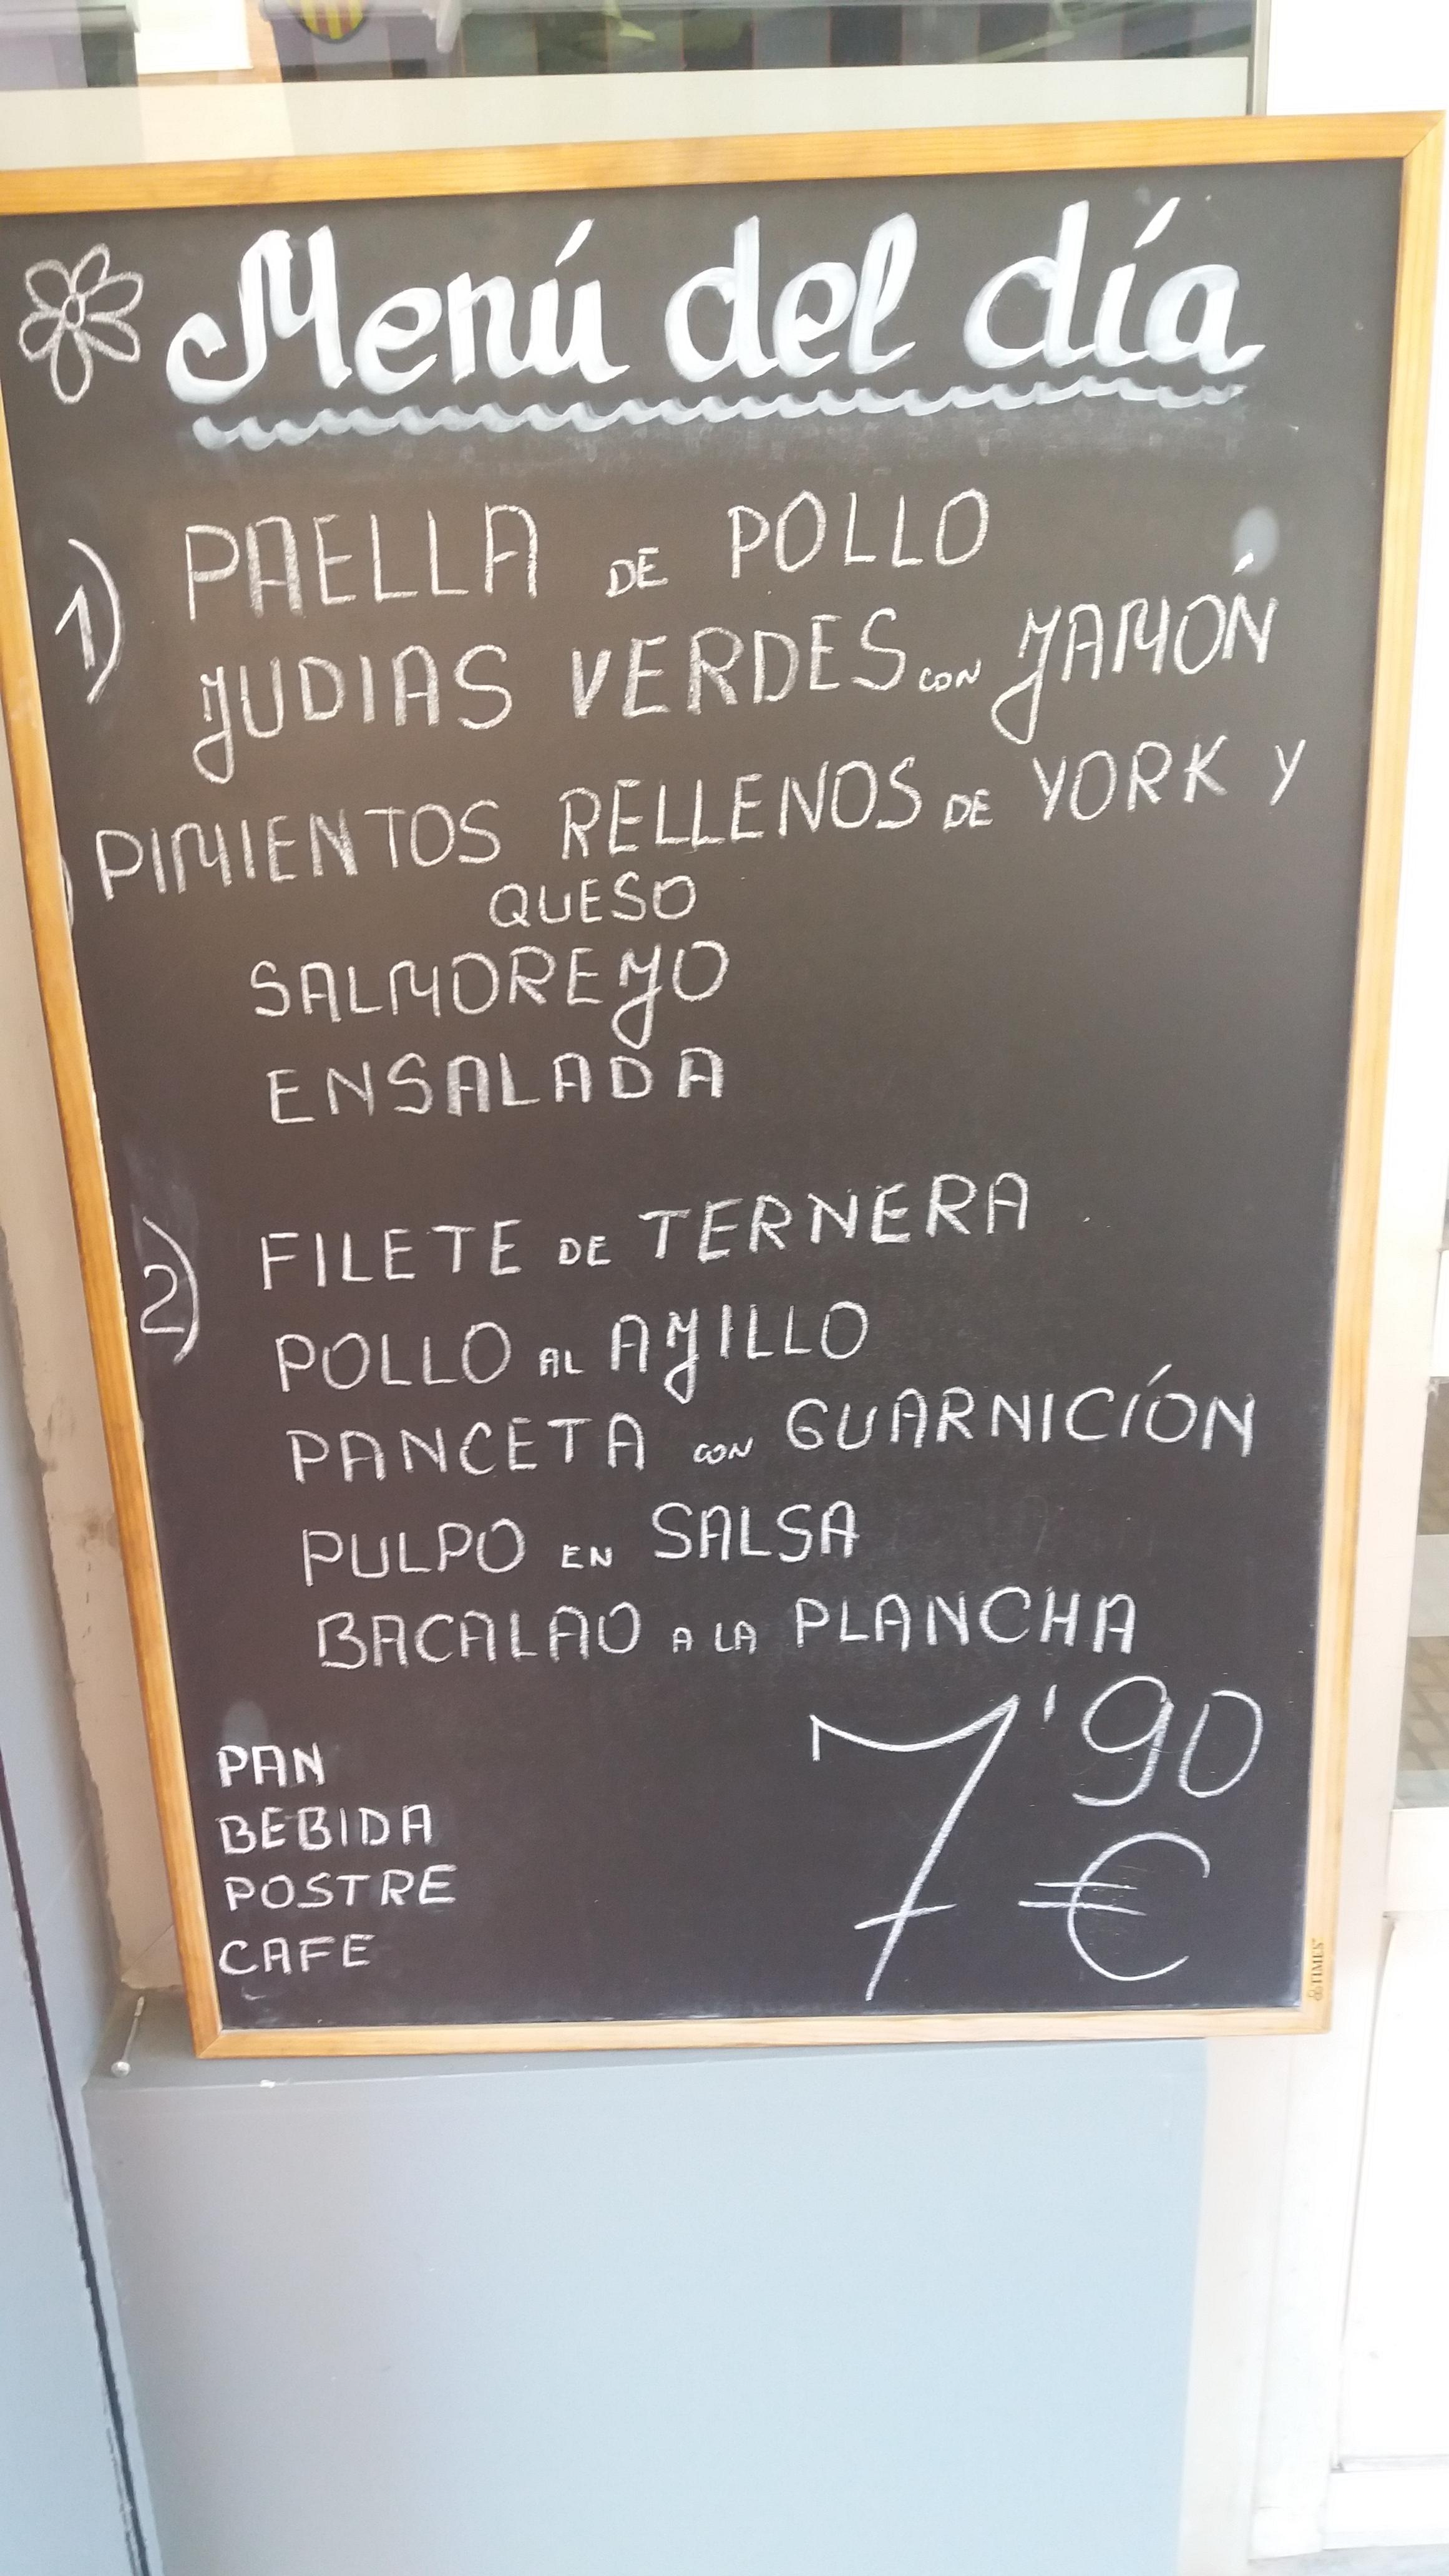 Menú del día
1) PAELLA DE POLLO
JUDIAS VERDES CON JAMÓN
PIMIENTOS RELLENOS DE YORK Y
QUESO
SALMOREJO
ENSALADA
2) FILETE DE TERNERA
POLLO AL AJILLO
PANCETA CON GUARNICÍON
PULPO EN SALSA
BACALAO A LA PLANCHA
7'90
€
PAN
BEBIDA
POSTRE
CAFE
TIMES